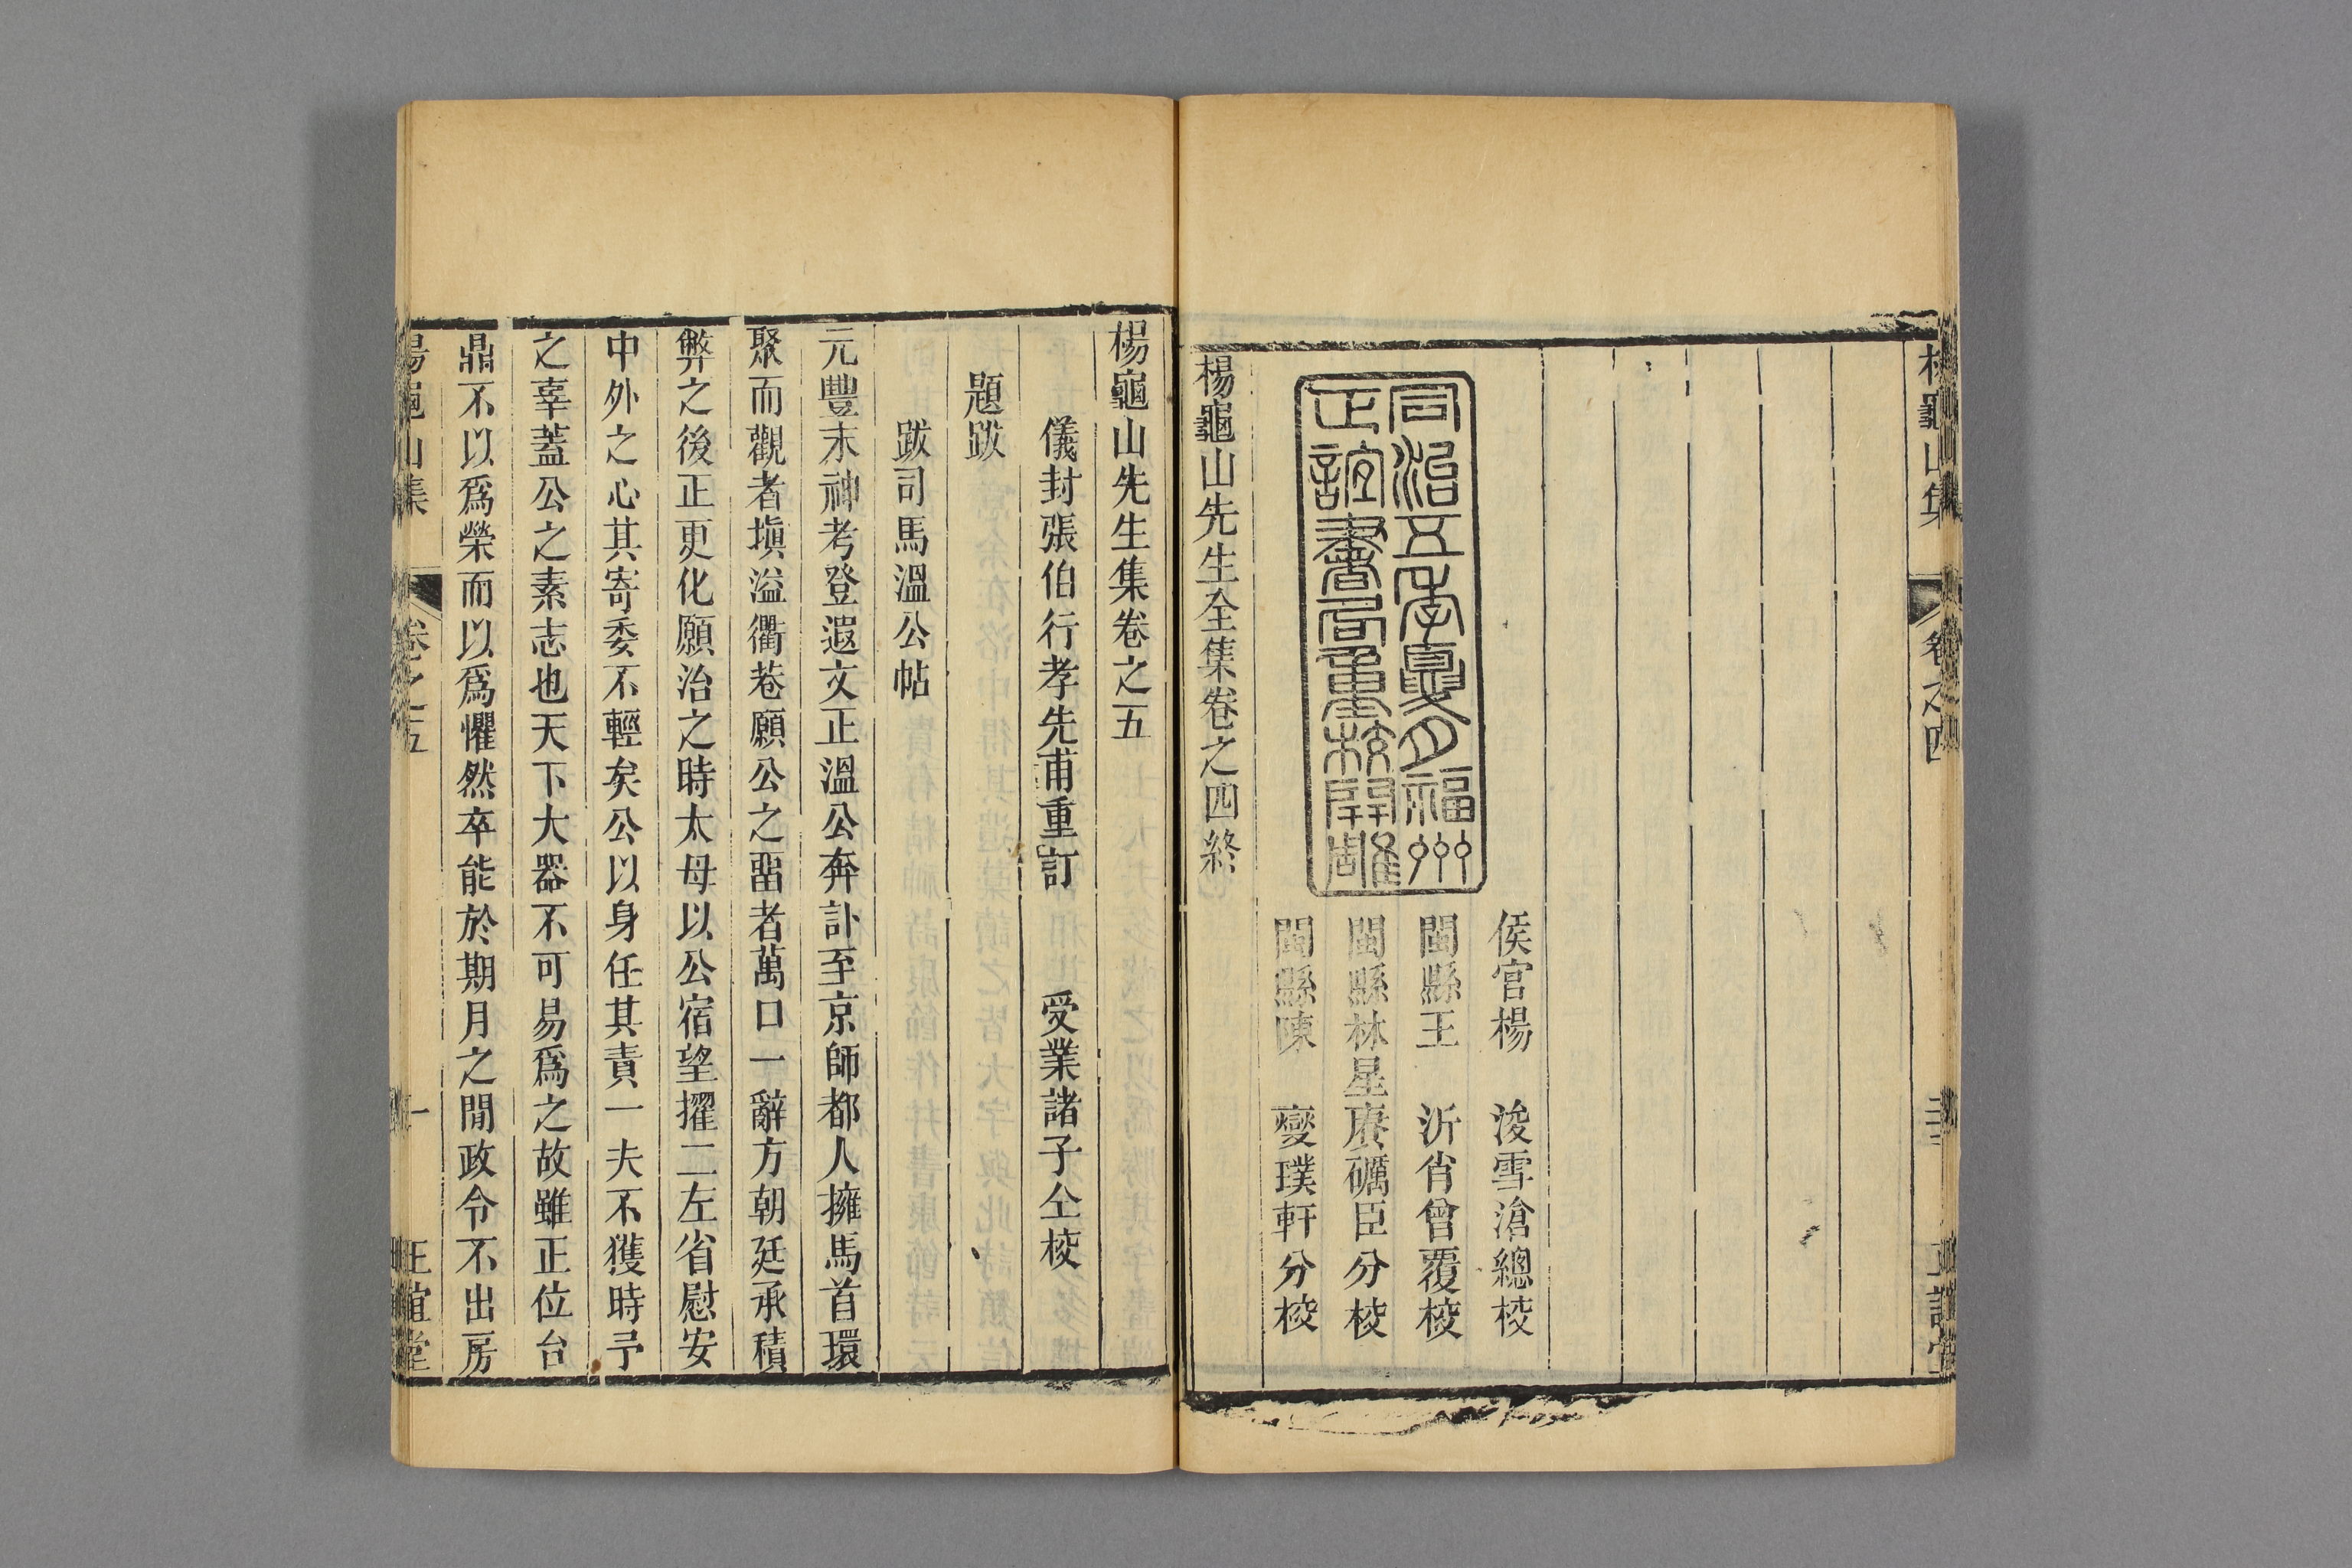 楊龜山集 卷之四 正誼堂
同治五年夏月福州
正誼書局重校開雕
侯官楊　浚雪滄總校
閩縣王　沂肖曾覆校
閩縣林星賡礪臣分校
閩縣陳　夑璞軒分校
楊龜山先生全集卷之四終
楊龜山先生集卷之五
儀封張伯行孝先甫重訂　受業諸子仝校
題跋
跋司馬溫公帖
元豐末神考登遐文正溫公奔訃至京師都人擁馬首環
聚而觀者塡溢衢巷願公之畱者萬口一辭方朝廷承積
弊之後正更化願治之時太母以公宿望擢二左省慰安
中外之心其寄委不輕矣公以身任其責一夫不獲時予
之辜蓋公之素志也天下大器不可易爲之故雖正位台
鼎不以爲榮而以爲懼然卒能於期月之閒政令不出房
楊龜山集 卷之五 一 正誼堂